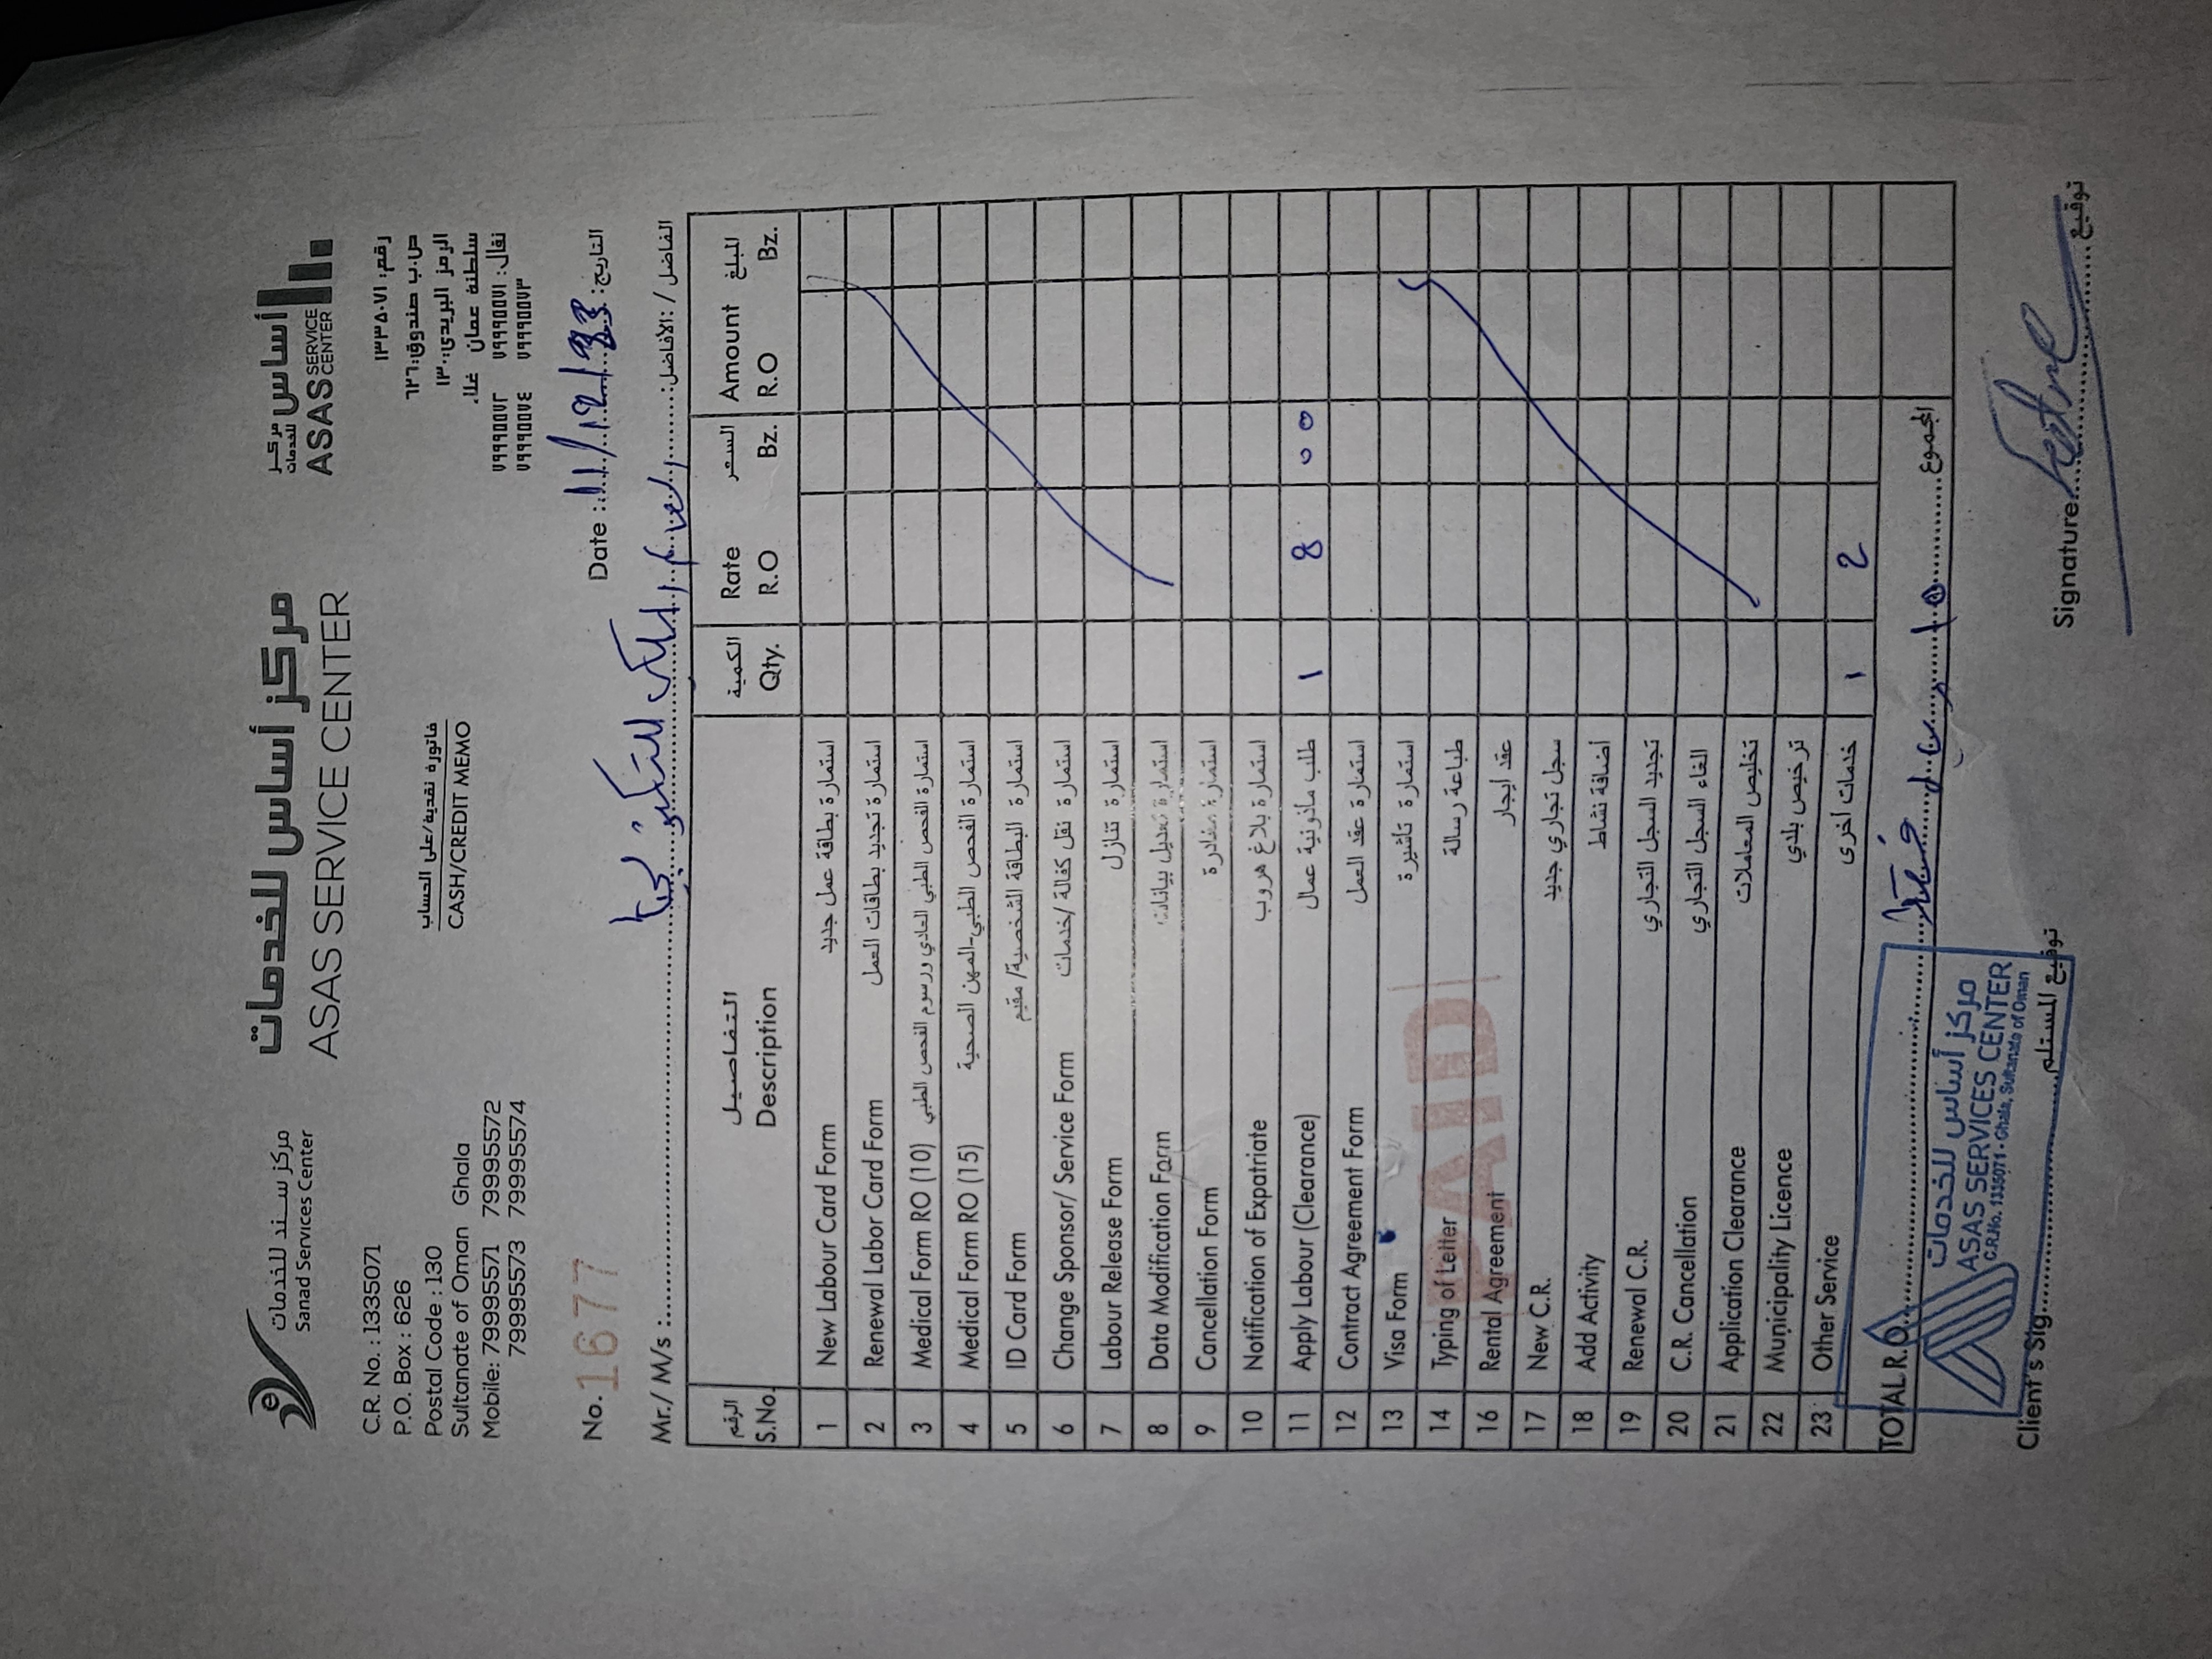 مركز سند للخدمات
Sanad Services Center
مركز أساس للخدمات
ASAS SERVICE CENTER
مركز أساس للخدمات
ASAS SERVICE CENTER
C.R. No. : 1335071
P.O. Box : 626
Postal Code : 130
Sultanate of Oman Ghala
Mobile: 79995571 79995572
79995573 79995574
فاتورة نقدية/على الحساب
CASH/CREDIT MEMO
رقم: ١٣٣٥٠٧١
ص.ب صندوق: ٦٢٦
الرمز البريدي: ١٣٠
سلطنة عمان غلاء
نقال: ٧٩٩٩٥٥٧١ ٧٩٩٩٥٥٧٢
٧٩٩٩٥٥٧٣ ٧٩٩٩٥٥٧٤
No. 1677
Date : 11/12/ التاريخ:
Mr./ M/s : الفاضل / الأفاضل:
الرقم التفاصيل الكمية السعر المبلغ
S.No. Description Qty. Rate R.O Bz. Amount R.O Bz.
1 New Labour Card Form استمارة بطاقة عمل جديد
2 Renewal Labor Card Form استمارة تجديد بطاقات العمل
3 Medical Form RO (10) استمارة الفحص الطبي العادي ورسوم الفحص الطبي
4 Medical Form RO (15) استمارة الفحص الطبي-المهن الصحية
5 ID Card Form استمارة البطاقة الشخصية/ مقيم
6 Change Sponsor/ Service Form استمارة نقل كفالة /خدمات
7 Labour Release Form استمارة تنازل
8 Data Modification Form استمارة تعديل بيانات
9 Cancellation Form استمارة مغادرة
10 Notification of Expatriate استمارة بلاغ هروب
11 Apply Labour (Clearance) طلب ماذونية عمال 1 8 00
12 Contract Agreement Form استمارة عقد العمل
13 Visa Form استمارة تاشيرة
14 Typing of Letter طباعة رسالة
16 Rental Agreement عقد إيجار
17 New C.R. سجل تجاري جديد
18 Add Activity أضافة نشاط
19 Renewal C.R. تجديد السجل التجاري
20 C.R. Cancellation الغاء السجل التجاري
21 Application Clearance تخليص المعاملات
22 Municipality Licence ترخيص بلدي
23 Other Service خدمات أخرى 1 2
PAID
TOTAL R.O المجموع
مركز أساس للخدمات
ASAS SERVICES CENTER
C.R.No. 1335071 - Ghala, Sultanate of Oman
Client's Sig. توقيع المستلم
Signature توقيع